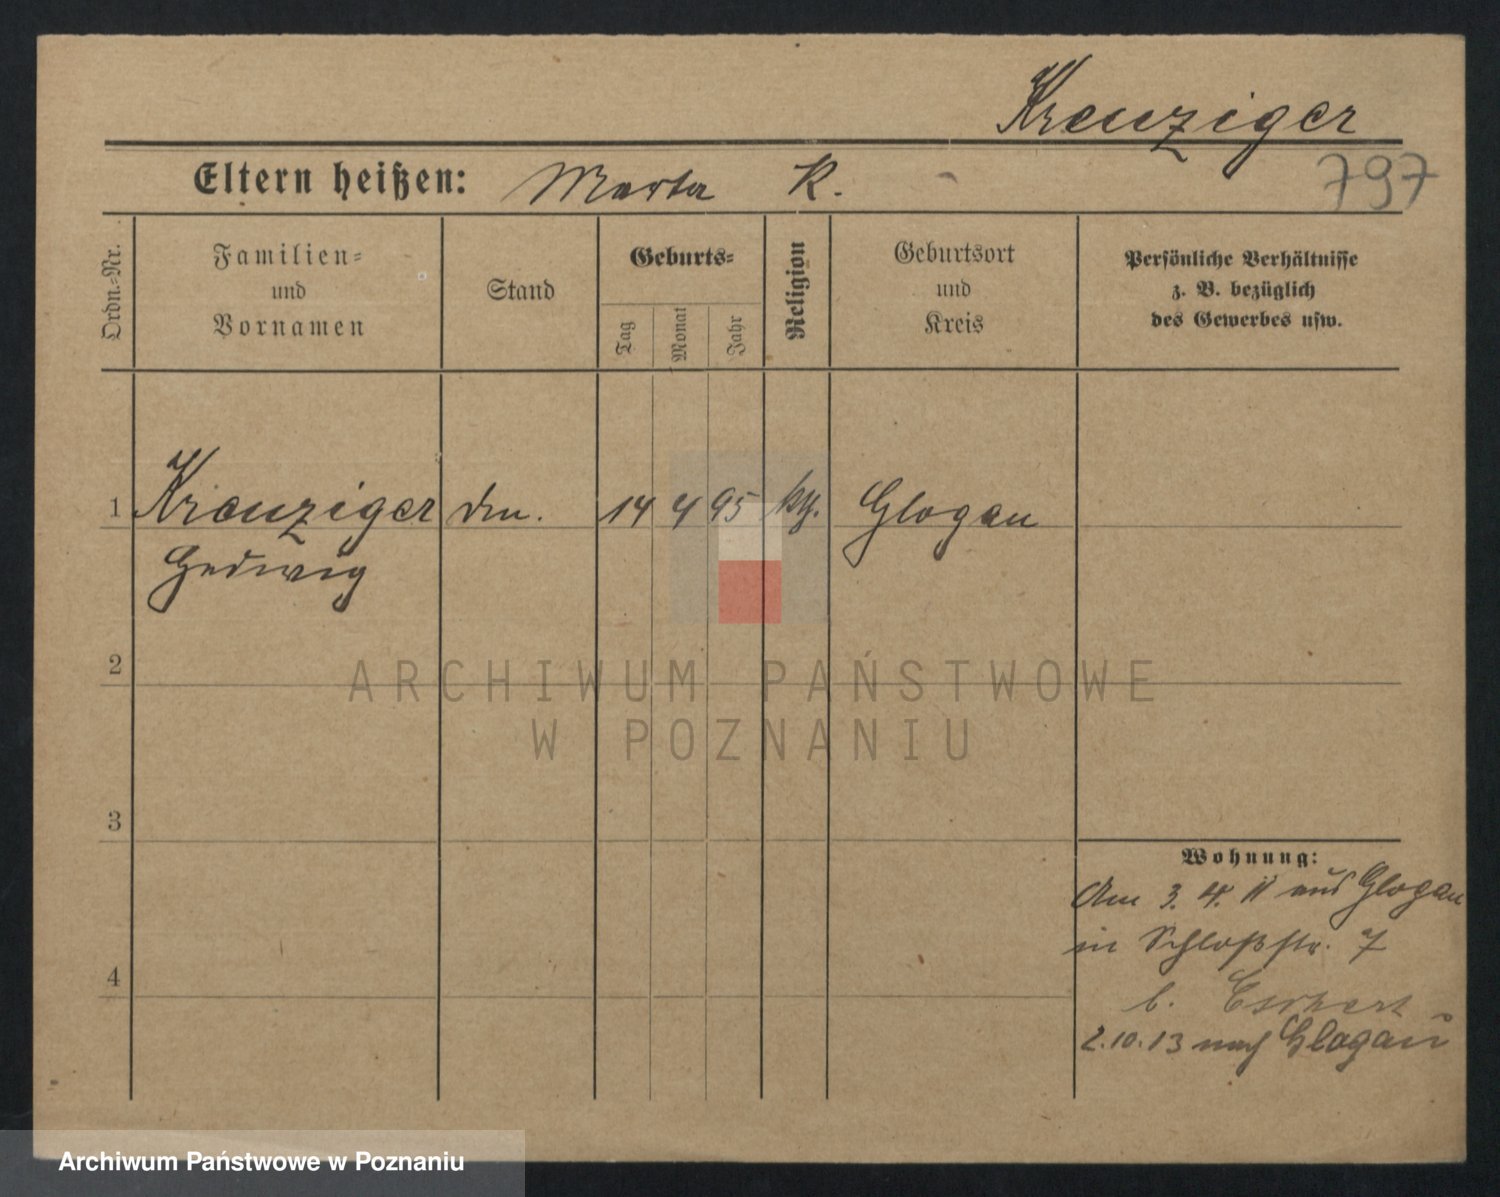 Kreuziger
797
Eltern heißen: Marta K.
Ordn.-Nr.
Familien-
und
Vornamen
Stand
Geburts-
Tag
Monat
Jahr
Religion
Geburtsort
und
Kreis
Persönliche Verhältnisse
z. B. bezüglich
des Gewerbes usw.
1 Kreuziger 14 4 95 kth. Glogau
Hedwig
2
ARCHIWUM PAŃSTWOWE
W POZNANIU
3
4
Wohnung:
Am 3. 4. 11 aus Glogau
in Schloßstr. 7
b.
2.10.13 nach Glogau
Archiwum Państwowe w Poznaniu